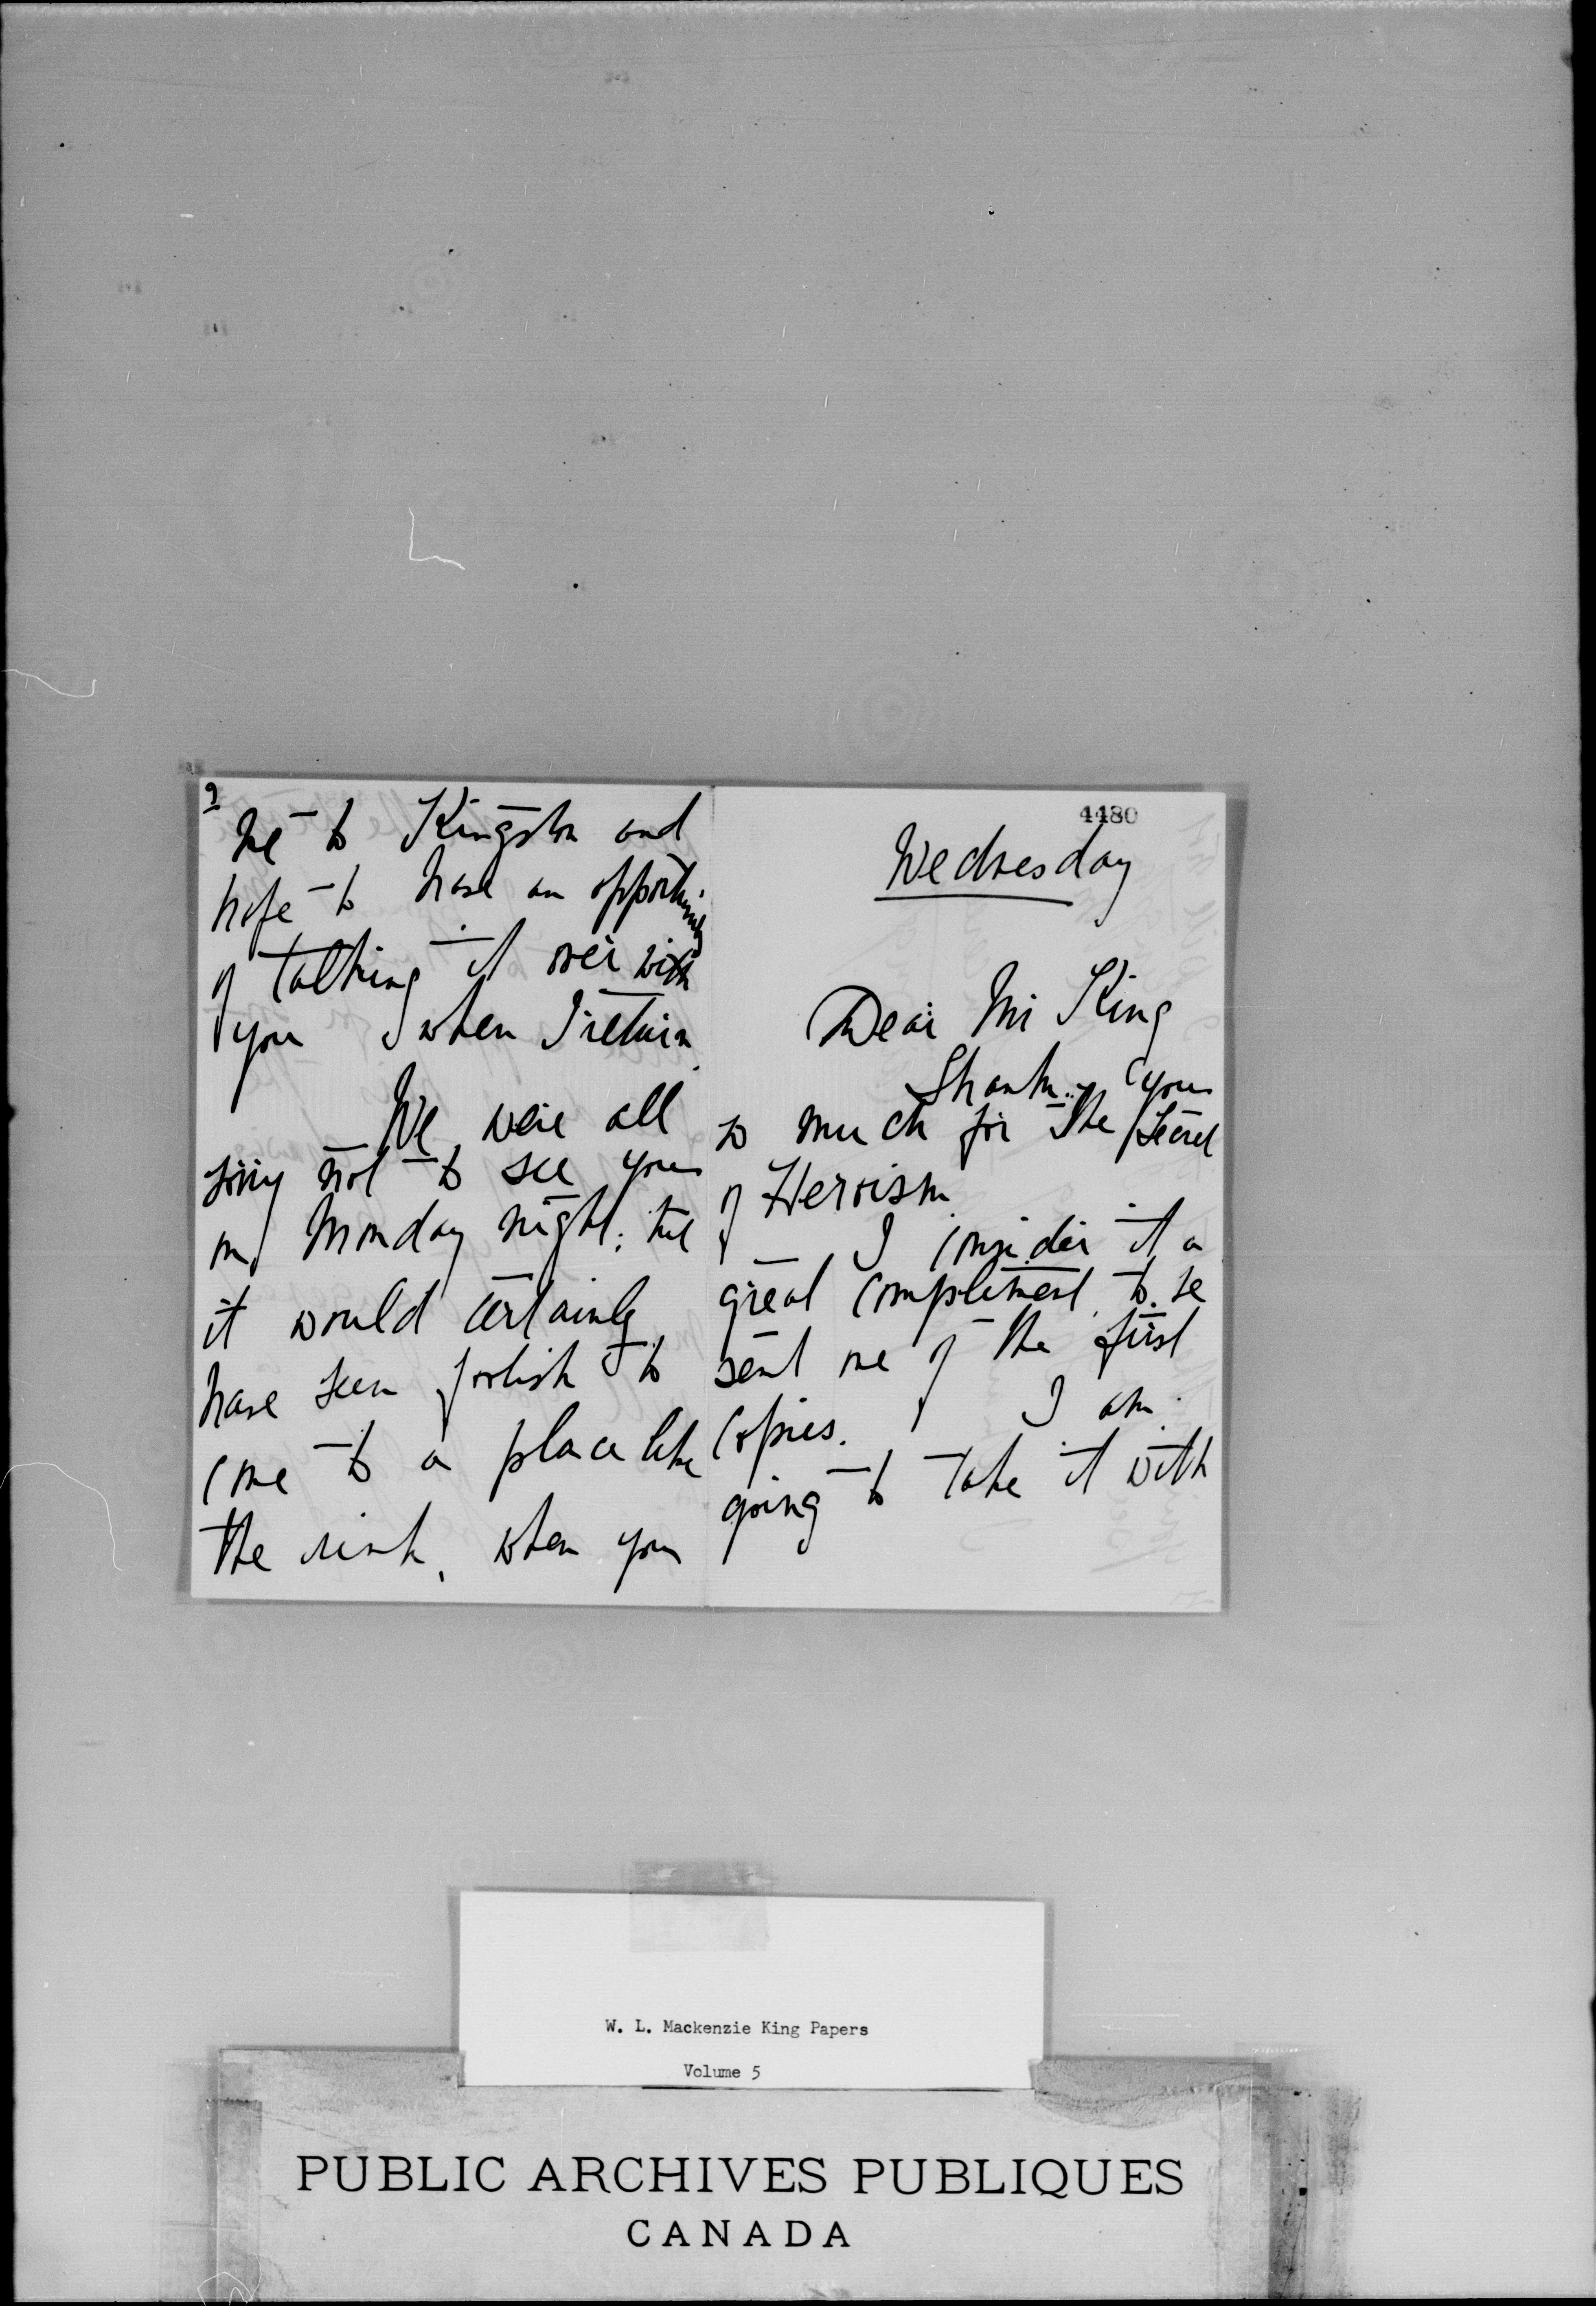 4480
Wednesday
Dear Mr King
Thank you
so much for the Secret
of Heroism.
I consider it a
great compliment to be
sent one of the first
copies. I am
going to take it with
2
me to Kingston and
hope to have an opportunity
of talking it over with
you when I return.
We were all
sorry not to see you
on Monday night: but
it would certainly
have been foolish to
come to a place like
the rink, when you
W. L. Mackenzie King Papers
Volume 5
PUBLIC ARCHIVES PUBLIQUES
CANADA